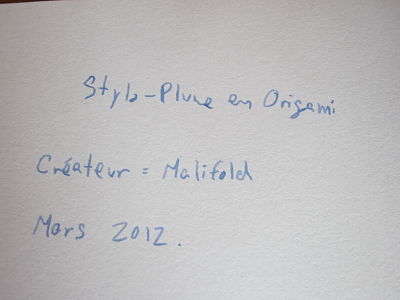 Stylo-Plume en Origami
Créateur = Malifold
Mars 2012.